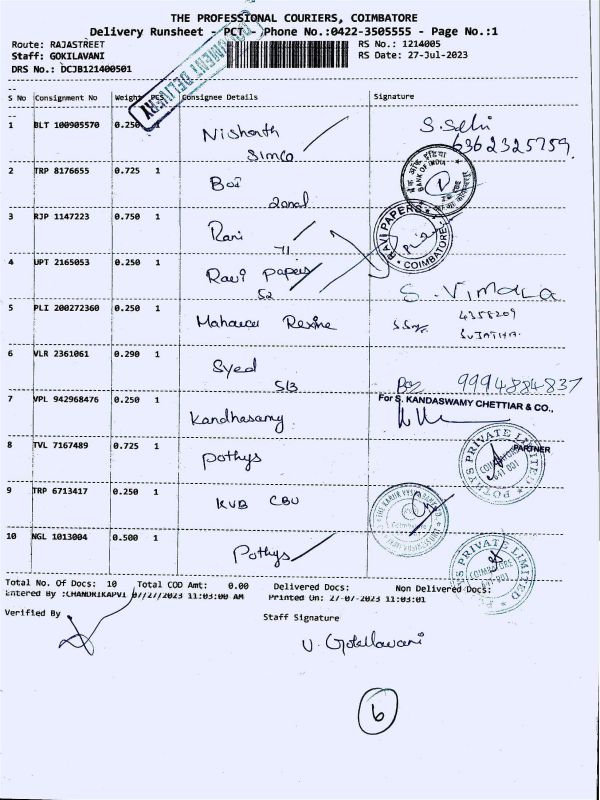 THE PROFESSIONAL COURIERS, COIMBATORE
Delivery Runsheet - PCT - Phone No.:0422-3505555 - Page No.:1
Route: RAJASTREET
RS No.: 1214005
Staff: GOKILAVANI
RS Date: 27-Jul-2023
DRS No.: DCJB121400501
DOCUMENT DELIVERY
S No Consignment No Weight PCS Consignee Details Signature
1 BLT 100905570 0.250 1 Nishanth
Simco
6362325759
2 TRP 8176655 0.725 1 BOI
Zonal
BANK OF INDIA
3 RJP 1147223 0.750 1 Rani
71
RAVI PAPERS
COIMBATORE
4 UPT 2165053 0.250 1 Ravi papers
52
S. Vimala
5 PLI 200272360 0.250 1 Rexine
4358209
SUJATHA
6 VLR 2361061 0.290 1 Syed
513
9994884837
7 VPL 942968476 0.250 1 Kandhasamy
For S. KANDASWAMY CHETTIAR & CO.,
PARTNER
8 TVL 7167489 0.725 1 Pothys
POTHYS PRIVATE LIMITED
COIMBATORE
641 001
9 TRP 6713417 0.250 1 KVB CBU
10 NGL 1013004 0.500 1 Pothys
POTHYS PRIVATE LIMITED
COIMBATORE
641 001
Total No. Of Docs: 10 Total COD Amt: 0.00 Delivered Docs: Non Delivered Docs:
Entered By :CHANDRIKAPVT 07/27/2023 11:03:00 AM Printed On: 27-07-2023 11:03:01
Verified By
Staff Signature
V. Gokilavani
6